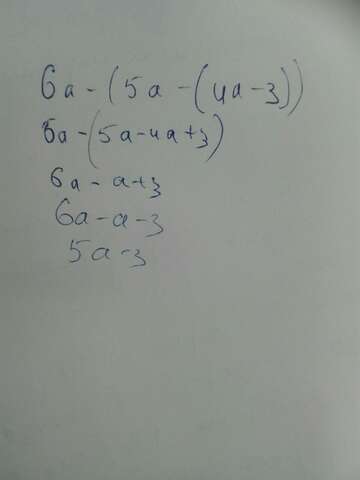 6a - (5a - (4a - 3))
6a - (5a - 4a + 3)
6a - a + 3
6a - a - 3
5a - 3